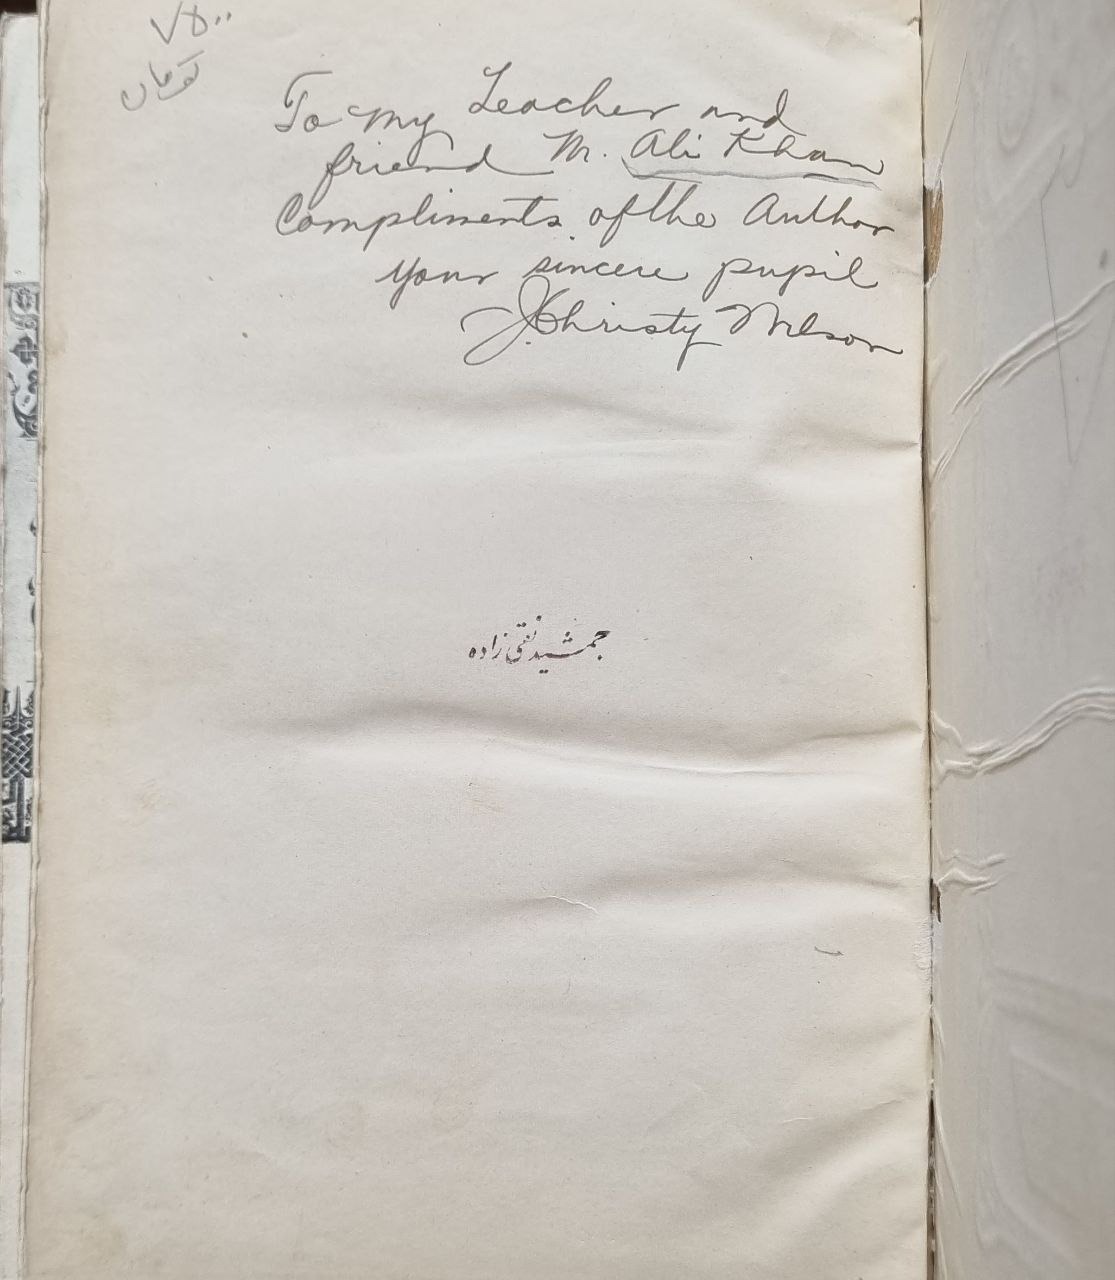 ۷۵۰۰
تومان
To my Teacher and
friend M. Ali Khan
Compliments of the Author
your sincere pupil
J. Christy Wilson
جمشید نقی زاده